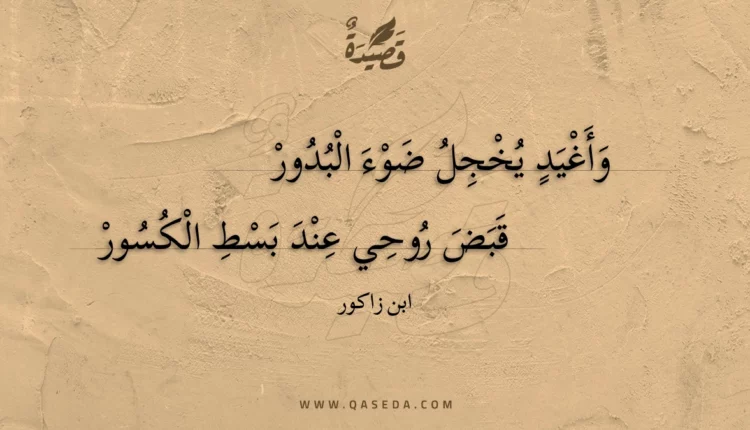 قَصِيدَةٌ
وَأَغْيَدٍ يُخْجِلُ ضَوْءَ الْبُدُورْ
قَبَضَ رُوحِي عِنْدَ بَسْطِ الْكُسُورْ
ابن زاكور
WWW.QASEDA.COM